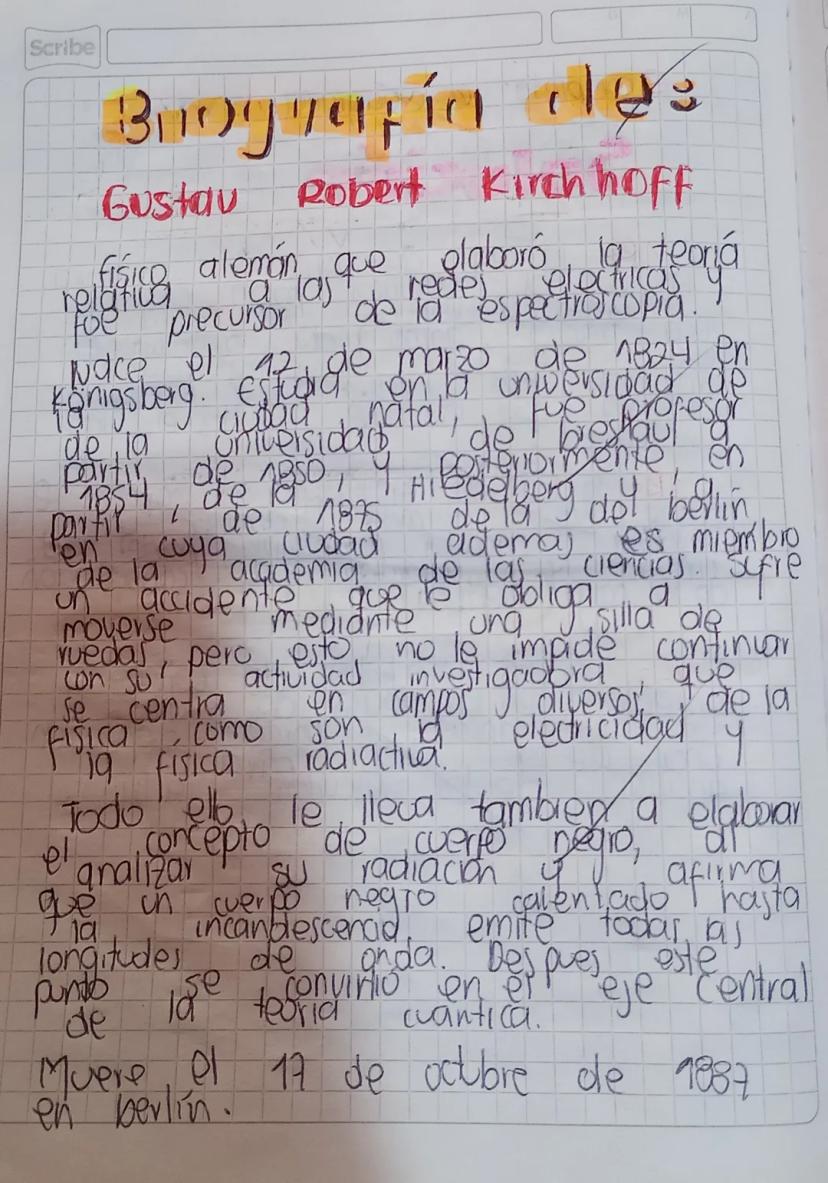 Scribe
Biografía de:
Gustav Robert Kirchhoff
físico alemán que elaboró la teoría
relativa a las redes electricas y
fue precursor de la espectroscopia.
Nace el 12 de marzo de 1824 en
Königsberg. Estudia en la universidad de
la ciudad natal, fue profesor
de la universidad de breslau a
partir de 1850, y posteriormente, en
1854, de la Hiedelberg y a
partir de 1875 de la del berlín
en cuya ciudad ademas es miembro
de la academia de las ciencias. Sufre
un accidente que le obliga a
moverse mediante una silla de
ruedas, pero esto no le impide continuar
con su actividad investigadora, que
se centra en campos diversos de la
fisica, como son la electricidad y
la fisica radiactiva.
Todo ello le lleva tambien a elaborar
el concepto de cuerpo negro, al
analizar su radiación y afirma
que un cuerpo negro calentado hasta
la incandescencia, emite todas las
longitudes de onda. Despues este
punto se convirtio en el eje central
de la teoria cuantica.
Muere el 17 de octubre de 1887
en berlín.